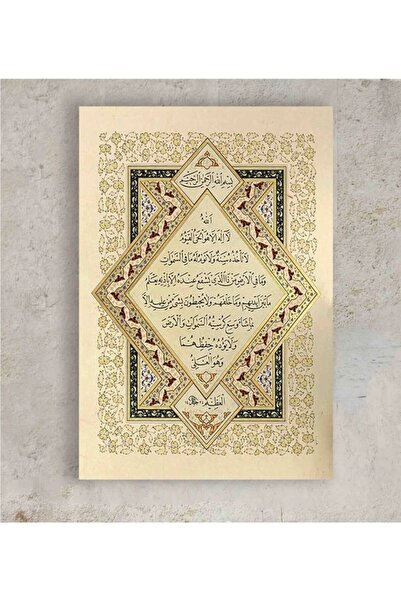 بسم الله الرحمن الرحيم
الله
لا اله الا هو الحي القيوم
لا تأخذه سنة ولا نوم له ما في السموات
وما في الارض من ذا الذي يشفع عنده الا باذنه يعلم
ما بين ايديهم وما خلفهم ولا يحيطون بشيء من علمه الا
بما شاء وسع كرسيه السموات والارض
ولا يؤده حفظهما
وهو العلي
العظيم